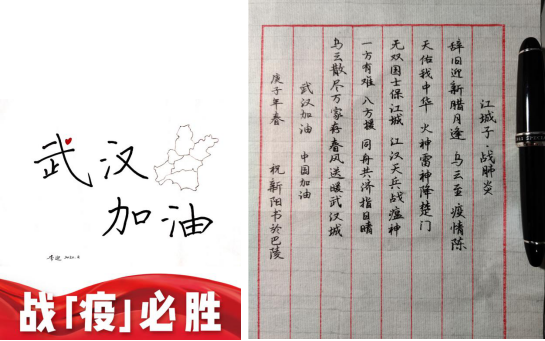 武汉
加油
战「疫」必胜
江城子·战肺炎
辞旧迎新腊月逢 乌云至 疫情陈
天佑我中华 火神雷神降楚门
无双国士保江城 江汉天兵战瘟神
一方有难 八方援 同舟共济指日晴
乌云散尽万家春 春风送暖武汉城
武汉加油 中国加油
庚子年春 祝新阳书於巴陵